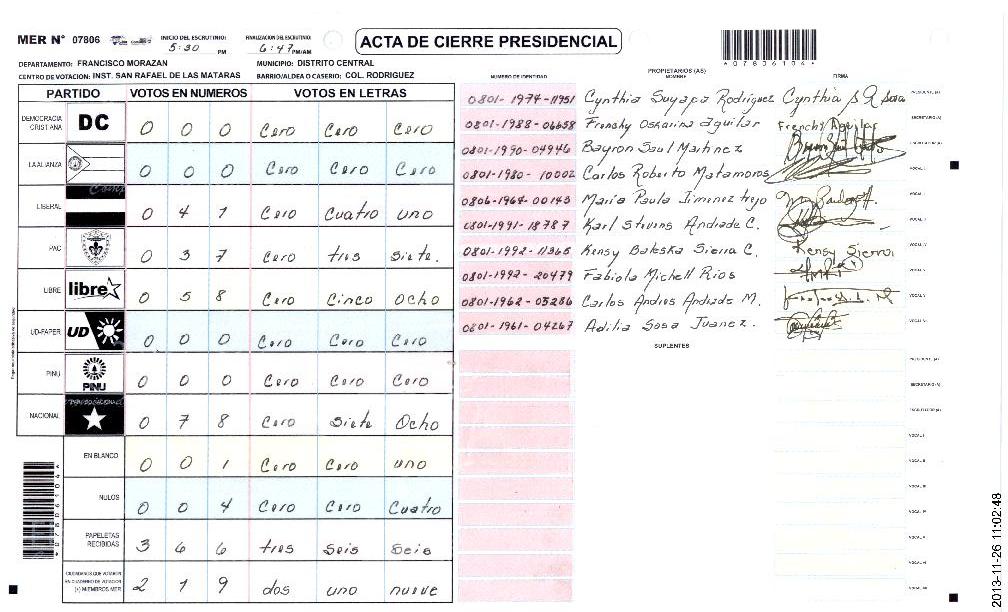 MER N° 07806
INICIO DEL ESCRUTINIO:
5:30 PM
FINALIZACION DEL ESCRUTINIO:
6:47 PM/AM
ACTA DE CIERRE PRESIDENCIAL
*07806104*
DEPARTAMENTO: FRANCISCO MORAZAN
MUNICIPIO: DISTRITO CENTRAL
CENTRO DE VOTACION: INST. SAN RAFAEL DE LAS MATARAS
BARRIO/ALDEA O CASERIO: COL. RODRIGUEZ
PARTIDO VOTOS EN NUMEROS VOTOS EN LETRAS
DEMOCRACIA CRISTIANA DC 0 0 0 Cero Cero Cero
LA ALIANZA 0 0 0 Cero Cero Cero
LIBERAL 0 4 1 Cero Cuatro uno
PAC 0 3 7 Cero tres Siete.
LIBRE libre 0 5 8 Cero Cinco Ocho
UD-FAPER UD 0 0 0 Cero Cero Cero
PINU PINU 0 0 0 Cero Cero Cero
NACIONAL 0 7 8 Cero Siete Ocho
EN BLANCO 0 0 1 Cero Cero uno
NULOS 0 0 4 Cero Cero Cuatro
PAPELETAS RECIBIDAS 3 6 6 tres Seis Seis
CIUDADANOS QUE VOTARON EN CUADERNO DE VOTACION (+) MIEMBROS MER 2 1 9 dos uno nueve
*07806104*
NUMERO DE IDENTIDAD
PROPIETARIOS (AS)
NOMBRE
FIRMA
0801-1974-11951 Cynthia Suyapa Rodriguez Cynthia PRESIDENTE (A)
0801-1988-06658 Frenshy Oskarina Aguilar Frenchy Aguilar SECRETARIO (A)
0801-1990-04946 Bayron Saul Martinez ESCRUTADOR (A)
0801-1980-10002 Carlos Roberto Matamoros VOCAL I
0806-1964-00143 Maria Paula Jimenez VOCAL II
0801-1991-18787 Karl Stevens Andrade C.
0801-1992-11365 Kensy Sierra C. Kensy Sierra
0801-1992-20479 Fabiola Michell Rios
0801-1962-03286 Carlos Andres Andrade M.
0801-1961-04267 Adilia Sosa Juanez.
SUPLENTES
PRESIDENTE (A)
SECRETARIO (A)
ESCRUTADOR (A)
VOCAL I
VOCAL II
VOCAL III
VOCAL IV
VOCAL V
VOCAL VI
2013-11-26 11:02:48